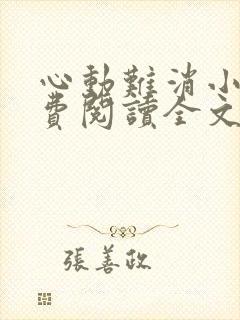 心動難消小
費閱讀全文
張善政